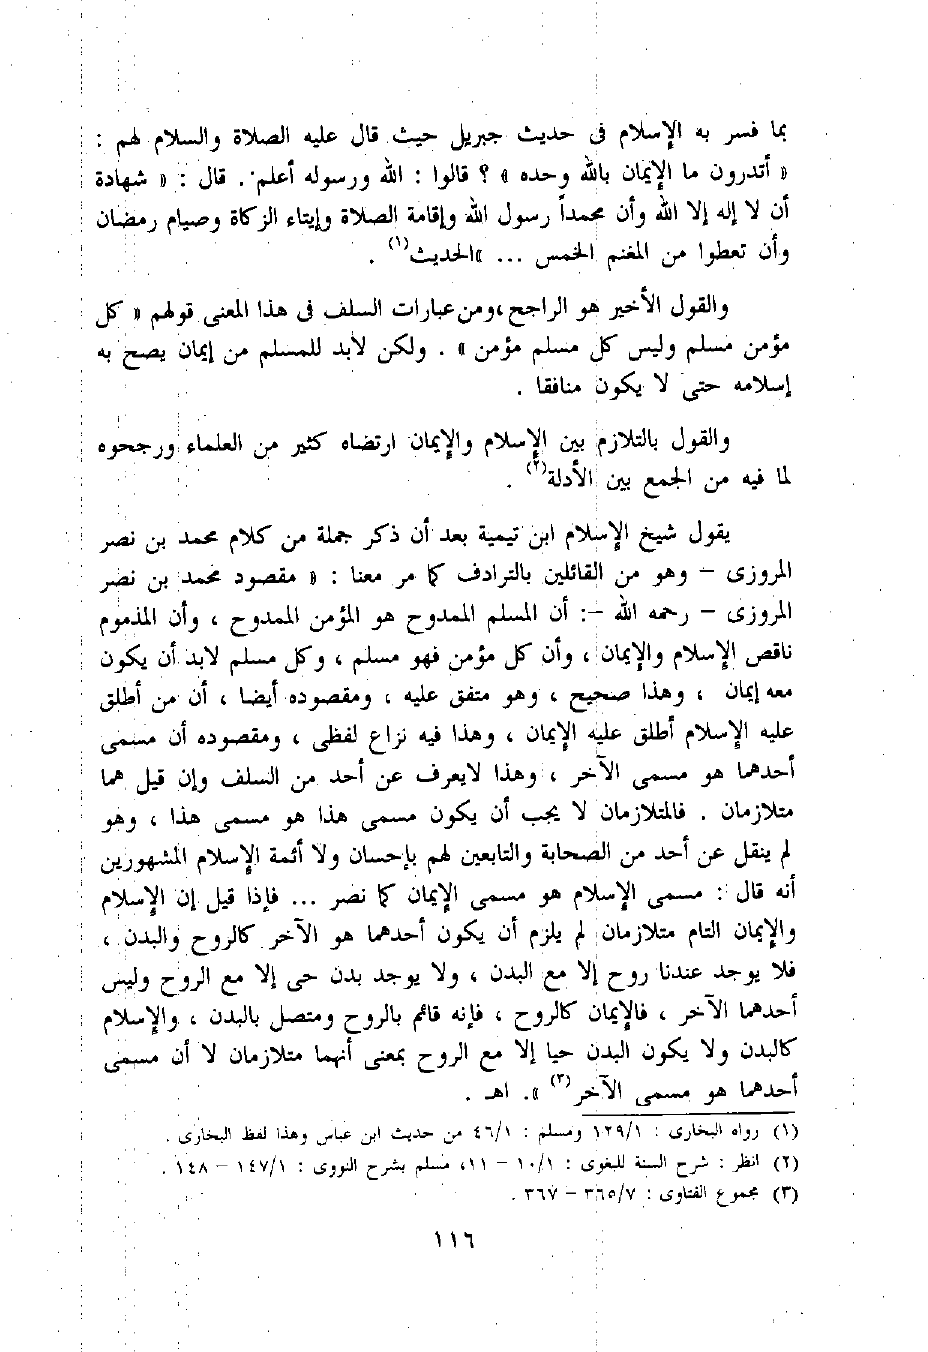 بما فسر به الإسلام فى حديث جبريل حيث قال عليه الصلاة والسلام لهم :
« أتدرون ما الإيمان بالله وحده » ؟ قالوا : الله ورسوله أعلم . قال : « شهادة
أن لا إله إلا الله وأن محمداً رسول الله وإقامة الصلاة وإيتاء الزكاة وصيام رمضان
وأن تعطوا من المغنم الخمس ... »الحديث(١) .
والقول الأخير هو الراجح ،ومن عبارات السلف فى هذا المعنى قولهم « كل
مؤمن مسلم وليس كل مسلم مؤمن » . ولكن لابد للمسلم من إيمان يصح به
إسلامه حتى لا يكون منافقا .
والقول بالتلازم بين الإسلام والإيمان ارتضاه كثير من العلماء ورجحوه
لما فيه من الجمع بين الأدلة(٢) .
يقول شيخ الإسلام ابن تيمية بعد أن ذكر جملة من كلام محمد بن نصر
المروزى – وهو من القائلين بالترادف كما مر معنا : « مقصود محمد بن نصر
المروزى – رحمه الله –: أن المسلم الممدوح هو المؤمن الممدوح ، وأن المذموم
ناقص الإسلام والإيمان ، وأن كل مؤمن فهو مسلم ، وكل مسلم لابد أن يكون
معه إيمان ، وهذا صحيح ، وهو متفق عليه ، ومقصوده أيضا ، أن من أطلق
عليه الإسلام أطلق عليه الإيمان ، وهذا فيه نزاع لفظى ، ومقصوده أن مسمى
أحدهما هو مسمى الآخر ، وهذا لايعرف عن أحد من السلف وإن قيل هما
متلازمان . فالمتلازمان لا يجب أن يكون مسمى هذا هو مسمى هذا ، وهو
لم ينقل عن أحد من الصحابة والتابعين لهم بإحسان ولا أئمة الإسلام المشهورين
أنه قال : مسمى الإسلام هو مسمى الإيمان كما نصر ... فإذا قيل إن الإسلام
والإيمان التام متلازمان لم يلزم أن يكون أحدهما هو الآخر كالروح والبدن ،
فلا يوجد عندنا روح إلا مع البدن ، ولا يوجد بدن حى إلا مع الروح وليس
أحدهما الآخر ، فالإيمان كالروح ، فإنه قائم بالروح ومتصل بالبدن ، والإسلام
كالبدن ولا يكون البدن حيا إلا مع الروح بمعنى أنهما متلازمان لا أن مسمى
أحدهما هو مسمى الآخر(٣) ». اهـ .
(١) رواه البخارى : ١٢٩/١ ومسلم : ٤٦/١ من حديث ابن عباس وهذا لفظ البخارى .
(٢) انظر : شرح السنة للبغوى : ١٠/١ – ١١، مسلم بشرح النووى : ١٤٧/١ – ١٤٨ .
(٣) مجموع الفتاوى : ٣٦٥/٧ – ٣٦٧ .
١١٦